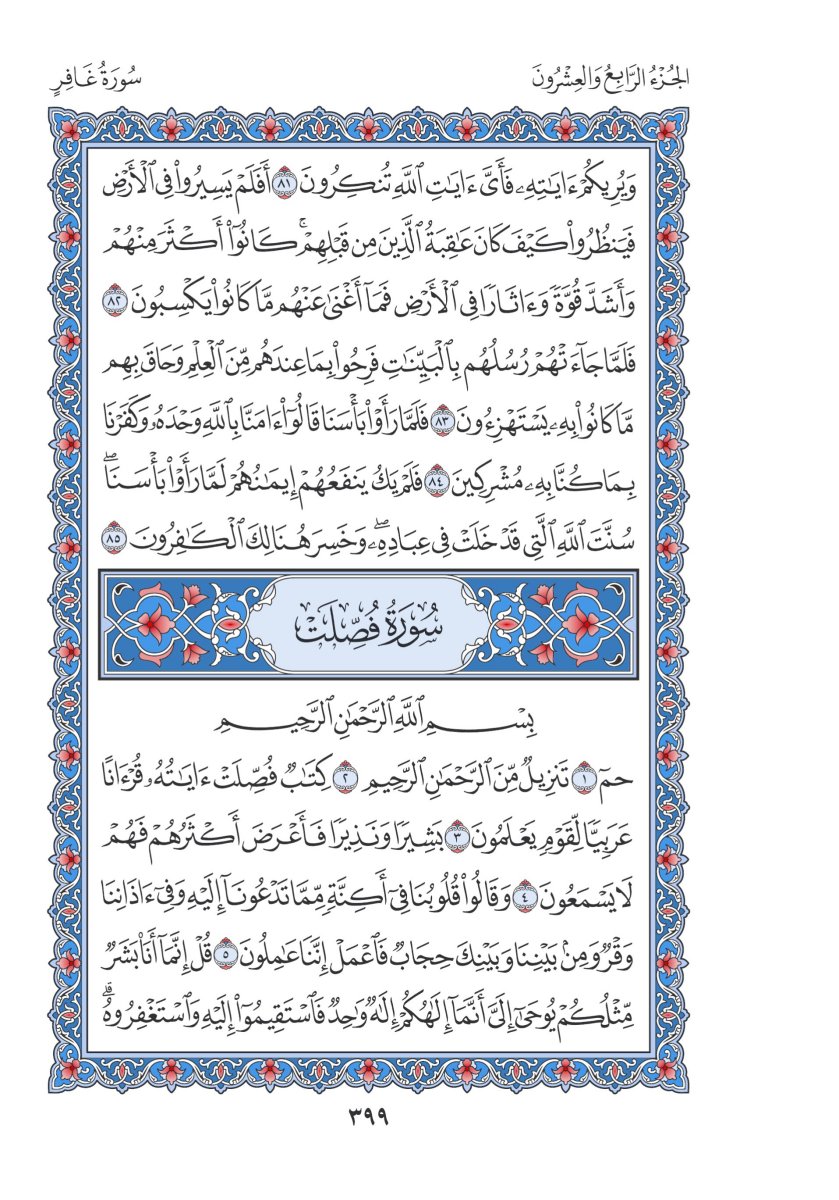 الجُزْءُ الرَّابِعُ وَالعِشْرُونَ
سُورَةُ غَافِرٍ
وَيُرِيكُمْ ءَايَـٰتِهِۦ فَأَىَّ ءَايَـٰتِ ٱللَّهِ تُنكِرُونَ ٨١ أَفَلَمْ يَسِيرُوا۟ فِى ٱلْأَرْضِ
فَيَنظُرُوا۟ كَيْفَ كَانَ عَـٰقِبَةُ ٱلَّذِينَ مِن قَبْلِهِمْ ۚ كَانُوٓا۟ أَكْثَرَ مِنْهُمْ
وَأَشَدَّ قُوَّةً وَءَاثَارًا فِى ٱلْأَرْضِ فَمَآ أَغْنَىٰ عَنْهُم مَّا كَانُوا۟ يَكْسِبُونَ ٨٢
فَلَمَّا جَآءَتْهُمْ رُسُلُهُم بِٱلْبَيِّنَـٰتِ فَرِحُوا۟ بِمَا عِندَهُم مِّنَ ٱلْعِلْمِ وَحَاقَ بِهِم
مَّا كَانُوا۟ بِهِۦ يَسْتَهْزِءُونَ ٨٣ فَلَمَّا رَأَوْا۟ بَأْسَنَا قَالُوٓا۟ ءَامَنَّا بِٱللَّهِ وَحْدَهُۥ وَكَفَرْنَا
بِمَا كُنَّا بِهِۦ مُشْرِكِينَ ٨٤ فَلَمْ يَكُ يَنفَعُهُمْ إِيمَـٰنُهُمْ لَمَّا رَأَوْا۟ بَأْسَنَا ۖ
سُنَّتَ ٱللَّهِ ٱلَّتِى قَدْ خَلَتْ فِى عِبَادِهِۦ ۖ وَخَسِرَ هُنَالِكَ ٱلْكَـٰفِرُونَ ٨٥
سُورَةُ فُصِّلَتْ
بِسْمِ ٱللَّهِ ٱلرَّحْمَـٰنِ ٱلرَّحِيمِ
حمٓ ١ تَنزِيلٌ مِّنَ ٱلرَّحْمَـٰنِ ٱلرَّحِيمِ ٢ كِتَـٰبٌ فُصِّلَتْ ءَايَـٰتُهُۥ قُرْءَانًا
عَرَبِيًّا لِّقَوْمٍ يَعْلَمُونَ ٣ بَشِيرًا وَنَذِيرًا فَأَعْرَضَ أَكْثَرُهُمْ فَهُمْ
لَا يَسْمَعُونَ ٤ وَقَالُوا۟ قُلُوبُنَا فِىٓ أَكِنَّةٍ مِّمَّا تَدْعُونَآ إِلَيْهِ وَفِىٓ ءَاذَانِنَا
وَقْرٌ وَمِنۢ بَيْنِنَا وَبَيْنِكَ حِجَابٌ فَٱعْمَلْ إِنَّنَا عَـٰمِلُونَ ٥ قُلْ إِنَّمَآ أَنَا۠ بَشَرٌ
مِّثْلُكُمْ يُوحَىٰٓ إِلَىَّ أَنَّمَآ إِلَـٰهُكُمْ إِلَـٰهٌ وَٰحِدٌ فَٱسْتَقِيمُوٓا۟ إِلَيْهِ وَٱسْتَغْفِرُوهُ ۗ
٣٩٩